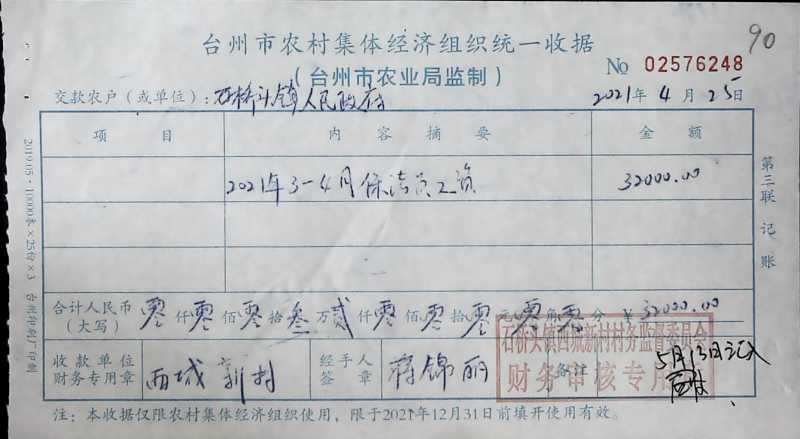 90
台州市农村集体经济组织统一收据
(台州市农业局监制)
№ 02576248
交款农户(或单位): 石桥头镇人民政府
2021年4月25日
项目 内容摘要 金额
2021年3-4月保洁员工资 32000.00
合计人民币(大写) 零仟零佰零拾叁万贰仟零佰零拾零元零角零分 ¥32000.00
收款单位财务专用章 西城新村 经手人签章 蒋锦丽 备注 5月13日记入
石桥头镇西城新村村务监督委员会
财务审核专用章
注:本收据仅限农村集体经济组织使用,限于2021年12月31日前填开使用有效。
第三联 记账
2019.05·10000本×25份×3 台州印刷厂印制